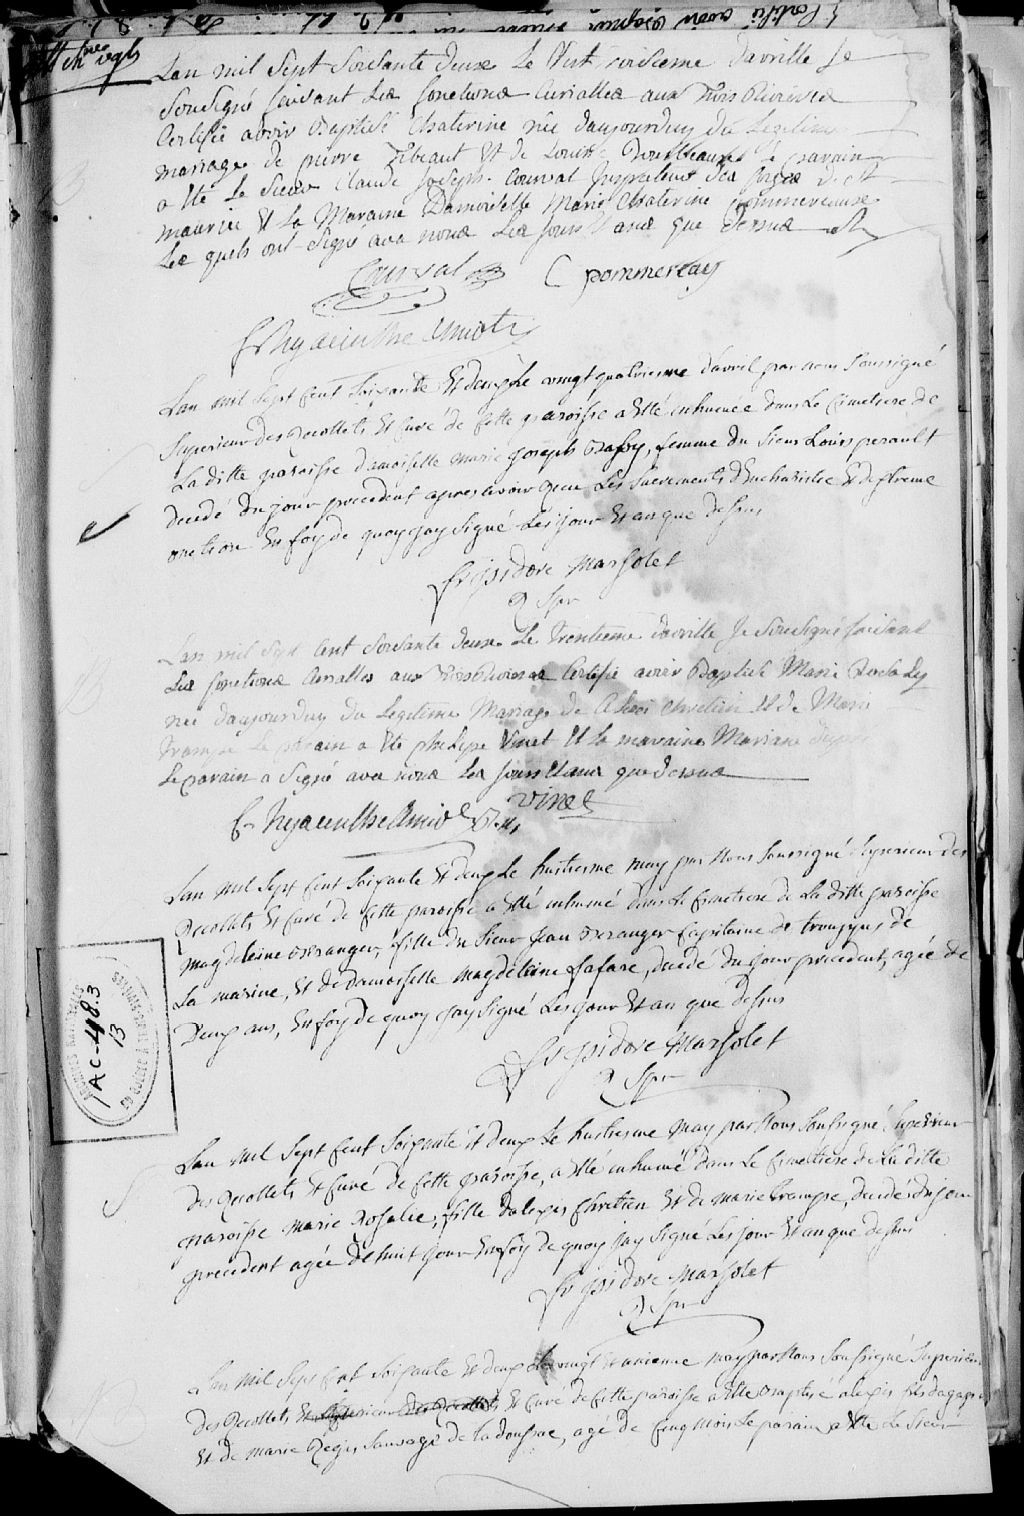 Lan mil Sept Soisante deuxe Le Vint troisieme davrille Je
Sousigné faisant Lex fonctionx Curiallex aux Trois Rivierex
Certifie avoir Baptisé Chaterine née daujourduy du Legitime
mariage de pierre Tibeaut et de Louise Le parain
a Eté Le Sieur Claude Joseph Courval Inspecteur dex forgex de St
maurice Et La Maraine Damoiselle Marie Chaterine pommereaux
Lex quels ont Signé avec noux Lex Jours Et anx que dessux
Courval
C pommereau
fr hyacinthe amiot
Lan mil Sept Cent Soixante Et deux Le vingt quatriesme davril par nous Soussigné
Superieur des Recollets Et Curé de Cette paroisse a Eté inhumée dans Le Cimetiere de
La ditte paroisse damoiselle marie Joseph femme du Sieur Louis perault
decedé du jour precedent apres avoir receu Les Sacrements d'Eucharistie Et d'extreme
onction En foy de quoy jay Signé Les jour Et an que dessus
fr isidore Marsolet
R Spr
Lan mil Sept Cent Soisante deuxe Le trentieme davrille Je Sousigné faisant
Lex fonctionx Curiallex aux Trois Rivierex Certifie avoir Baptisé Marie Rosaley
née daujourduy du Legitime Mariage de Alexi Chretien Et de Marie
Trampe Le parain a Eté philipe Vinet Et La maraine Mariane
Le parain a Signé avec noux Lex Jours Et anx que dessux
vinet
fr hyacinthe Amiot
Lan mil Sept Cent Soixante Et deux Le huitiesme may par Nous Soussigné Superieur des
Recollets Et Curé de Cette paroisse a Eté inhumé dans Le Cimetiere de La ditte paroisse
Magdeleine Beranger, fille du Sieur Jean Beranger Capitaine de trouppes de
La marine, Et de Damoiselle Magdeleine Lafare, decedé du jour precedent, agée de
Deux ans, En foy de quoy jay Signé Les jour Et an que dessus
fr isidore Marsolet
R Spr
AC-48.3
13
Lan mil Sept Cent Soixante et deux Le huitiesme May par Nous Soussigné Superieur
des Recollets Et Curé de Cette paroisse, a Eté inhumé dans Le Cimettiere de La ditte
paroisse Marie Rosalie, fille dalexis Chretien Et de Marie Trampe, decedés du jour
precedent agée de huit jour En foy de quoy jay Signé Les jour Et an que dessus
fr isidore Marsolet
R Spr
Lan mil Sept Cent Soixante Et deux Le vingt et unieme may par Nous Soussigné Superieur
des Recollets Et Curé de Cette paroisse a Eté Baptisé alexis fils
Et de marie Sauvage de agé de Cinq mois Le parain a Eté Le Sieur